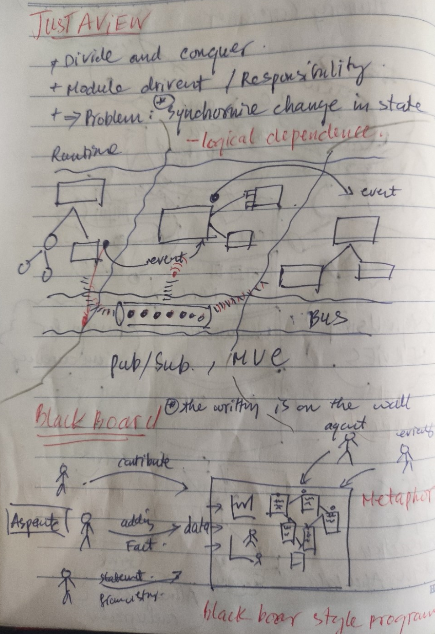 JUST A VIEW
+ Divide and conquer.
+ Module drivent / Responsibility.
+ => Problem: * Synchornire change in state
- logical dependence.
Runtime
event
event
BUS
pub/sub. , MVC
Black Board * the writing is on the wall
agent
contribute
Metaphor
adding data
Fact.
statement.
black boar style program